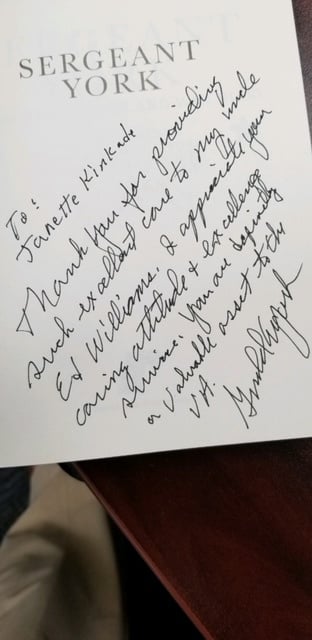 SERGEANT
YORK
To:
Janette Kinkade
Thank you for providing
such excellent care to my uncle
Ed Williams. I appreciate your
caring attitude & excellence
service. You are definitly
a valuable asset to the
VA.